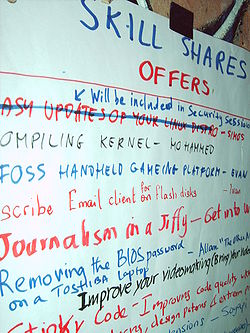 SKILL SHARES
OFFERS
Will be included in Security Session
ASY UPDATES OF YOUR LINUX DISTRO - SIMOS
OMPILING KERNEL - MOHAMMED
FOSS HANDHELD GAMEING PLATFORM - EVAN
scribe Email client for on flash disks -
Journalism in a Jiffy - Get into
Removing the BIOS password - Allan "The
on a TOSHIBA laptop
Improve your videomaking (Bring your
Stinky Code - Improves code quality
design patterns & extrem